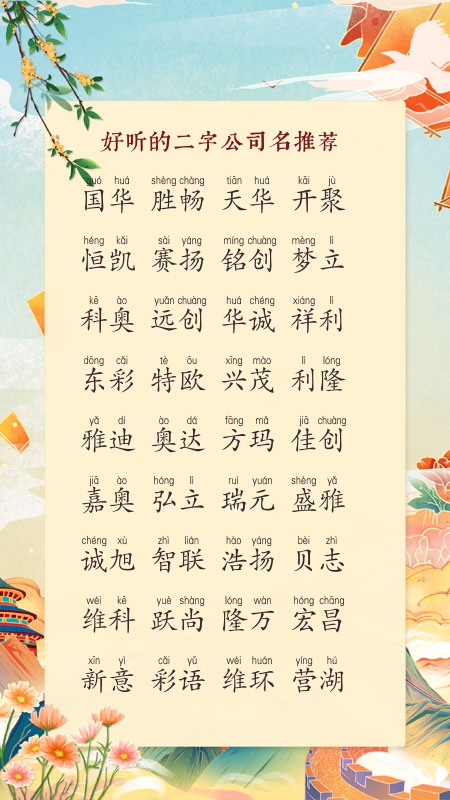 好听的二字公司名推荐
guó huá shèng chàng tiān huá kāi jù
国华 胜畅 天华 开聚
héng kǎi sài yáng míng chuàng mèng lì
恒凯 赛扬 铭创 梦立
kē ào yuǎn chuàng huá chéng xiáng lì
科奥 远创 华诚 祥利
dōng cǎi tè ōu xīng mào lì lóng
东彩 特欧 兴茂 利隆
yǎ dí ào dá fāng mǎ jiā chuàng
雅迪 奥达 方玛 佳创
jiā ào hóng lì ruì yuán shèng yǎ
嘉奥 弘立 瑞元 盛雅
chéng xù zhì lián hào yáng bèi zhì
诚旭 智联 浩扬 贝志
wéi kē yuè shàng lóng wàn hóng chāng
维科 跃尚 隆万 宏昌
xīn yì cǎi yǔ wéi huán yíng hú
新意 彩语 维环 营湖